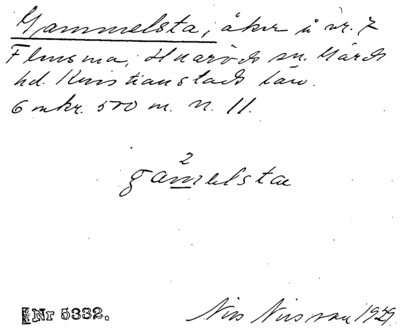 Gammelsta, åker å nr. 7
Flinsma, Huaröds sn. Gärds
hd. Kristianstads län.
6 mkr. 500 m. N. 11.
2
gamelstae
Nr 5332.
Nils Nilsson 1929.